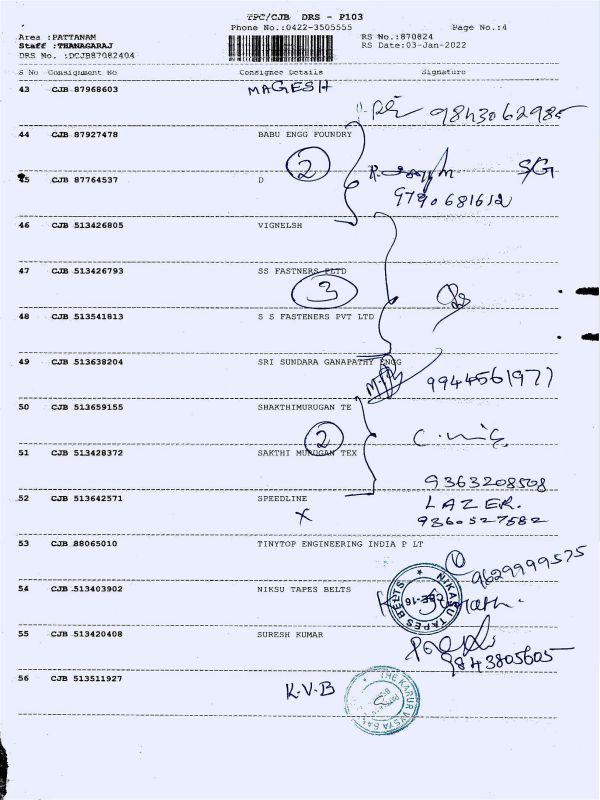 TPC/CJB DRS - P103
Phone No.:0422-3505555 Page No.:4
Area :PATTANAM RS No.:870824
Staff :THANAGARAJ RS Date:03-Jan-2022
DRS No. :DCJB87082404
S No Consignment No Consignee Details Signature
43 CJB 87968603 MAGESH
9843062985
44 CJB 87927478 BABU ENGG FOUNDRY
2
45 CJB 87764537 D SG
9790681612
46 CJB 513426805 VIGNELSH
47 CJB 513426793 SS FASTNERS PLTD
3
48 CJB 513541813 S S FASTENERS PVT LTD
49 CJB 513638204 SRI SUNDARA GANAPATHY ENGG
9944561977
50 CJB 513659155 SHAKTHIMURUGAN TE
2
51 CJB 513428372 SAKTHI MURUGAN TEX
9363208508
52 CJB 513642571 SPEEDLINE LAZER.
X 9360527582
53 CJB 88065010 TINYTOP ENGINEERING INDIA P LT
9629999575
54 CJB 513403902 NIKSU TAPES BELTS
NIKASU TAPES BELTS
55 CJB 513420408 SURESH KUMAR
9843805605
56 CJB 513511927 K.V.B
THE KARUR VYSYA BA